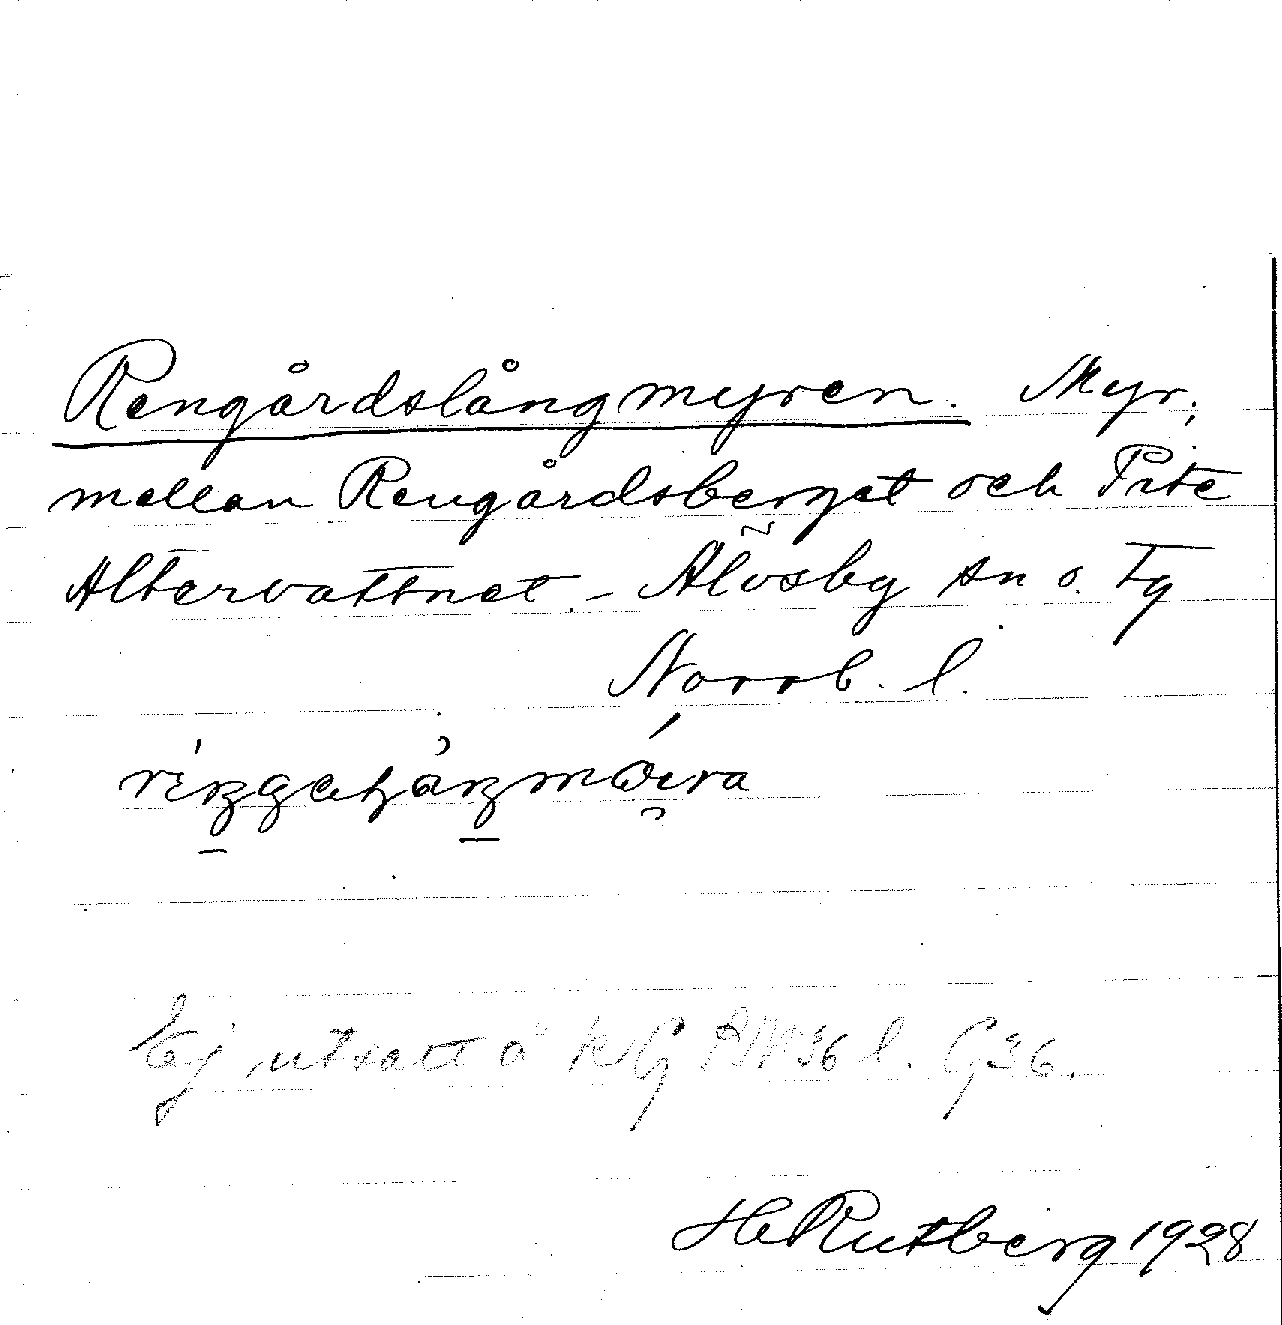 Rengårdslångmyren. Myr,
mellan Rengårdsberget och Pite
Altervattnet. - Älvsby sn o. Tg
Norrb. l.
Ej utsatt å KG
G36.
H Rutberg 1928